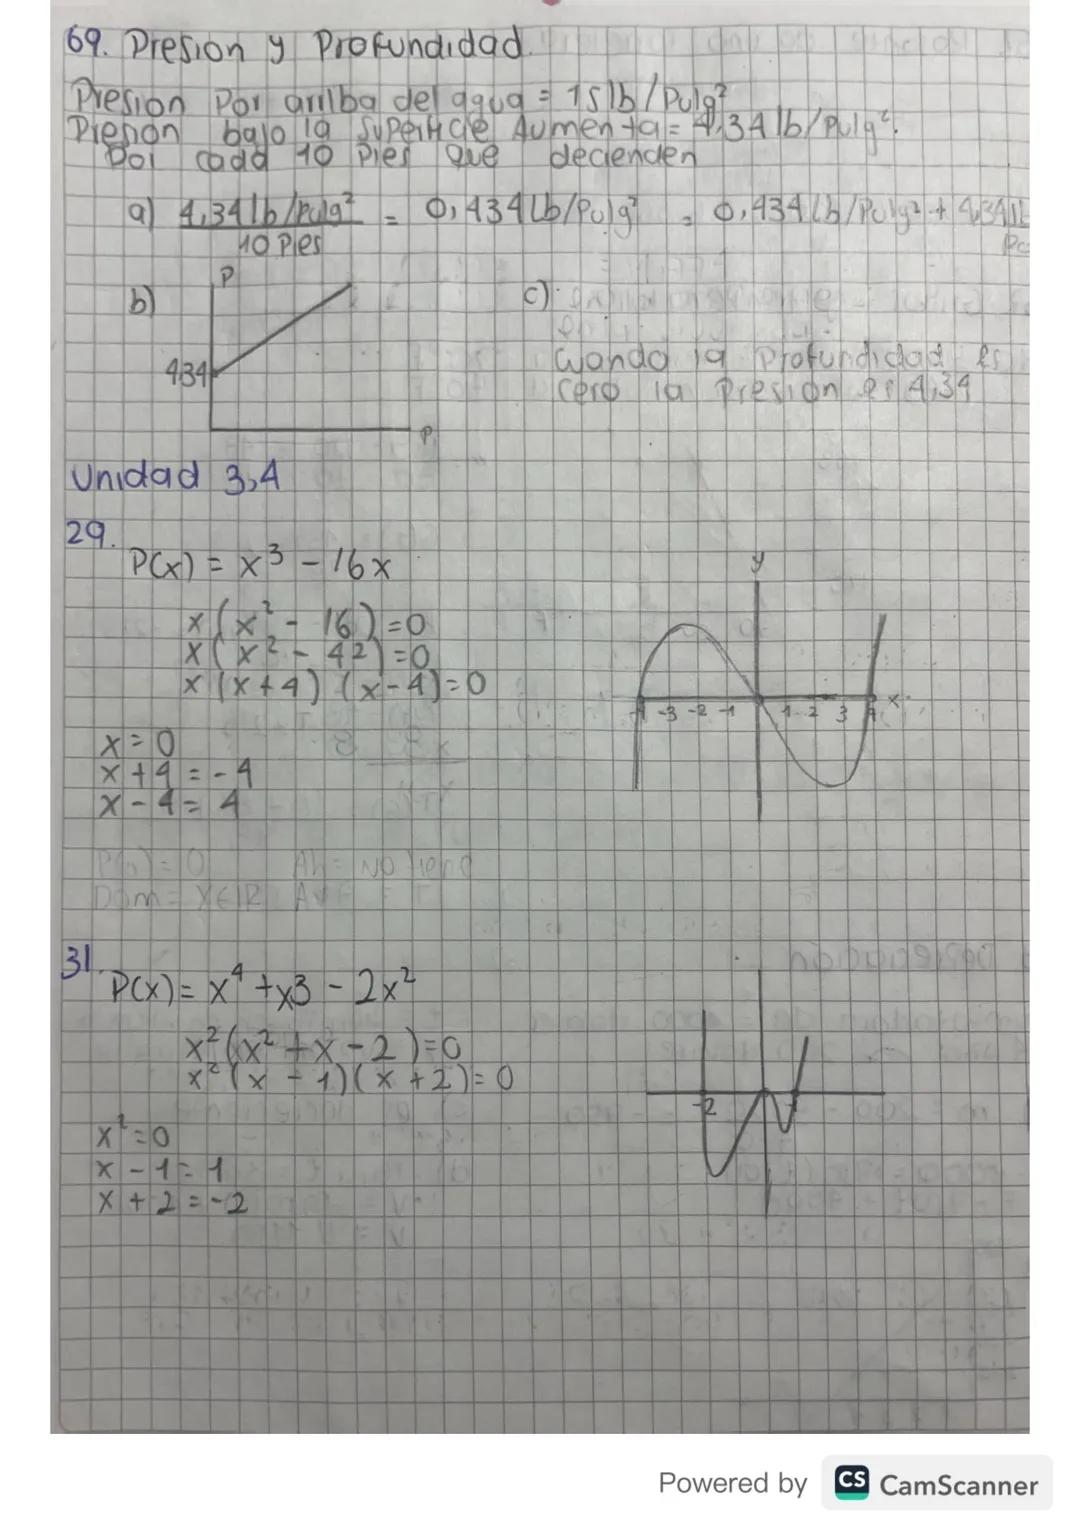 69. Presion y Profundidad.
Presion Por arriba del agua = 15 lb/Pulg²
Presion bajo la superficie Aumenta = 4,34 lb/Pulg².
Por cada 10 Pies que decienden
a) 4,34 lb/Pulg² / 10 Pies = 0,434 Lb/Pulg² = 0,434 Lb/Pulg² + 4,34 lb
b)
P
434
P
c)
Cuando la Profundidad es
cero la Presion es 4,34
Unidad 3,4
29.
P(x) = x³ - 16x
x(x² - 16) = 0
x(x² - 42) = 0
x(x+4)(x-4) = 0
x = 0
x + 4 = -4
x - 4 = 4
y
-4 -3 -2 -1 1 2 3 4 x
P(0) = 0 Ah = No tiene
Dom = X∈R
31.
P(x) = x⁴ + x3 - 2x²
x²(x² + x - 2) = 0
x²(x - 1)(x + 2) = 0
x² = 0
x - 1 = 1
x + 2 = -2
-2 1
Powered by CS CamScanner